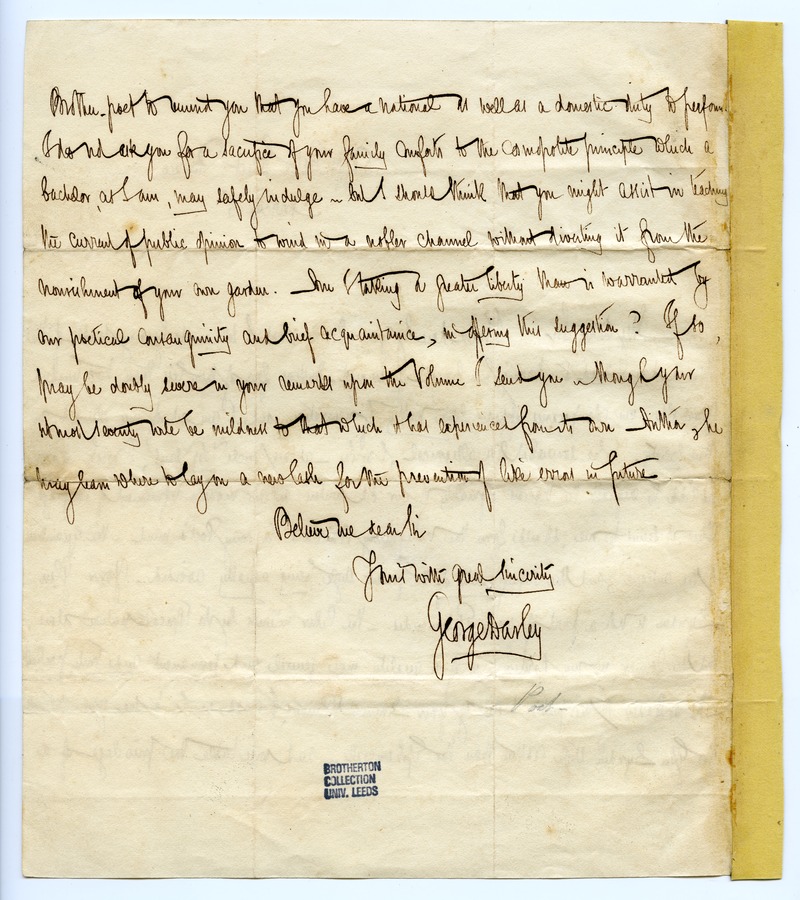 Brother-poet to remind you that you have a national as well as a domestic duty to perform.
I do not ask you for a sacrifice of your family comforts to the cosmopolite principle which a
bachelor, as I am, may safely indulge – but I should think that you might assist in teaching
the current of public opinion to wind in a nobler channel without diverting it from the
nourishment of your own garden. Am I taking a greater liberty than is warranted by
our poetical consanguinity and brief acquaintance, in offering this suggestion? If so,
may be doubly severe in your remarks upon the Volume I send you – though your
utmost severity will be mildness to that which it has experienced from its own Author; he
may learn where to lay on a new lash for the prevention of like errors in future
Believe me dear Sir
Yours with great sincerity
George Darley
Poet
BROTHERTON
COLLECTION
UNIV. LEEDS